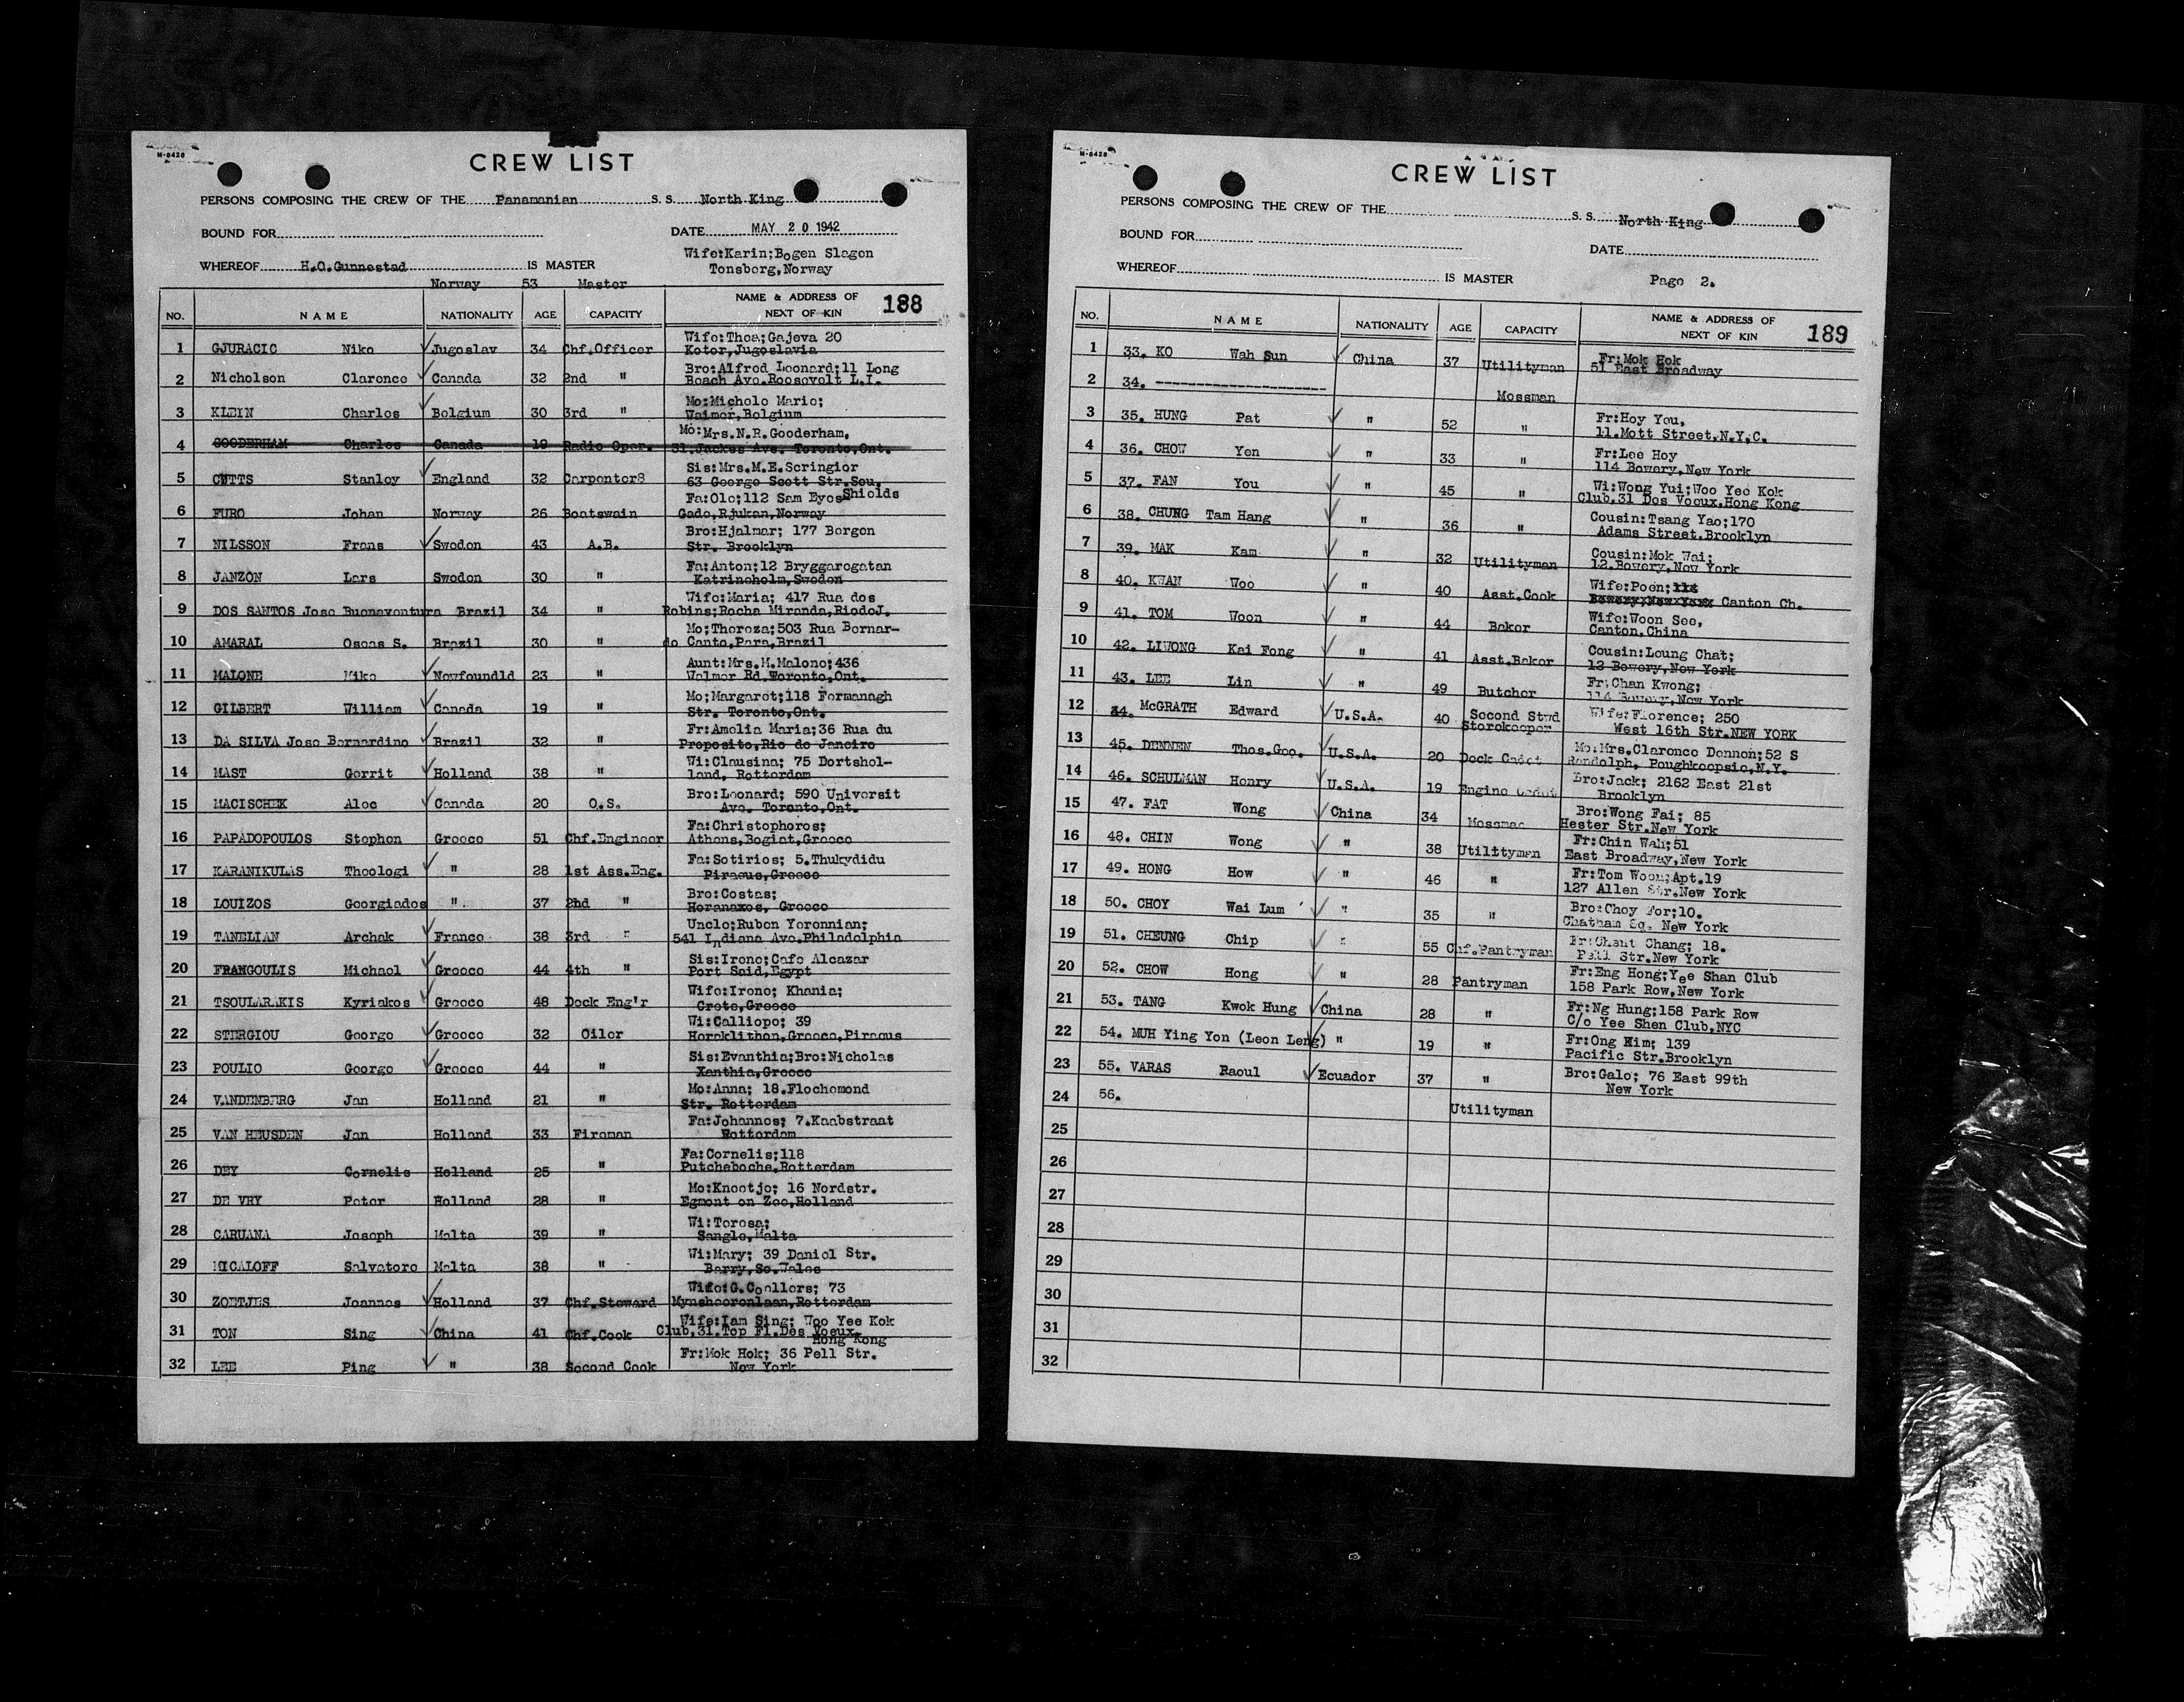 M-8428
CREW LIST
PERSONS COMPOSING THE CREW OF THE Panamanian S. S. North King
BOUND FOR DATE MAY 20 1942
WHEREOF H.O.Gunnestad IS MASTER Wife:Karin;Bogen Slagen
Tonsberg,Norway
Norway 53 Master
NO. NAME NATIONALITY AGE CAPACITY NAME & ADDRESS OF NEXT OF KIN 188
1 GJURACIC Niko Jugoslav 34 Chf.Officer Wife:Thea;Gajeva 20
Kotor,Jugoslavia
2 Nicholson Clarence Canada 32 2nd " Bro:Alfred Leonard;11 Long
Beach Ave.Roosevelt L.I.
3 KLEIN Charles Belgium 30 3rd " Mo:Michele Marie;
Waimer,Belgium
4 GOODERHAM Charles Canada 19 Radio Oper. Mo:Mrs.N.R.Gooderham,
31.Jackes Ave. Toronto,Ont.
5 CUTTS Stanley England 32 Carpenter8 Sis:Mrs.M.E.Scringior
63 George Scott Str.Sou,
Shields
6 FURO Johan Norway 26 Boatswain Fa:Ole;112 Sam Eyes
Gade,Rjukan,Norway
7 NILSSON Frans Sweden 43 A.B. Bro:Hjalmar; 177 Bergen
Str. Brooklyn
8 JANZON Lars Sweden 30 " Fa:Anton;12 Bryggaregatan
Katrineholm,Sweden
9 DOS SANTOS Jose Buenaventura Brazil 34 " Wife:Maria; 417 Rua dos
Robins;Rocha Miranda,RiodeJ.
10 AMARAL Oscas S. Brazil 30 " Mo;Thereza;503 Rua Bernar-
do Canto,Para,Brazil
11 MALONE Mike Newfoundld 23 " Aunt:Mrs.M.Malone;436
Walmer Rd.Toronto,Ont.
12 GILBERT William Canada 19 " Mo;Margaret;118 Fermanagh
Str. Toronto,Ont.
13 DA SILVA Jose Bernardino Brazil 32 " Fr:Amelia Maria;36 Rua du
Proposito,Rio de Janeiro
14 MAST Gerrit Holland 38 " Wi:Clausina; 75 Bortshol-
land, Rotterdam
15 MACISCHEK Alec Canada 20 O.S. Bro:Leonard; 590 Universit
Ave. Toronto,Ont.
16 PAPADOPOULOS Stephen Greece 51 Chf.Engineer Fa:Christophoros;
Athens,Bogiat,Greece
17 KARANIKULAS Theologi " 28 1st Ass.Eng. Fa:Sotirios; 5.Thukydidu
Piraeus,Greece
18 LOUIZOS Georgiades " 37 2nd " Bro:Costas;
Horanaxos, Greece
19 TANELIAN Archak France 38 3rd " Uncle;Ruben Yerennian;
541 Indiana Ave.Philadelphia
20 FRANGOULIS Michael Greece 44 4th " Sis:Irene;Cafe Alcazar
Port Said,Egypt
21 TSOULARAKIS Kyriakos Greece 48 Deck Eng'r Wife:Irene; Khania;
Crete,Greece
22 STERGIOU George Greece 32 Oiler Wi:Calliope; 39
Horaklithon,Greece,Piraeus
23 POULIO George Greece 44 " Sis:Evanthia;Bro:Nicholas
Xanthia,Greece
24 VANDENBERG Jan Holland 21 " Mo:Anna; 18.Flochemond
Str. Rotterdam
25 VAN HEUSDEN Jan Holland 33 Fireman Fa:Johannes; 7.Kaabstraat
Rotterdam
26 DEY Cornelis Holland 25 " Fa:Cornelis;118
Putcheboche,Rotterdam
27 DE VRY Peter Holland 28 " Mo:Kneetje; 16 Nordstr.
Egmont on Zee,Holland
28 CARUANA Joseph Malta 39 " Wi:Teresa;
Sangle,Malta
29 MICALOFF Salvatore Malta 38 " Wi:Mary; 39 Daniel Str.
Barry,So.Wales
30 ZOETJES Joannes Holland 37 Chf.Steward Wife:G.Coollers; 73
Mynsheerenlaan,Rotterdam
31 TON Sing China 41 Chf.Cook Wife:Iam Sing; Woo Yee Kok
Club,31.Top Fl.Des Voeux,
Hong Kong
32 LEE Ping " 38 Second Cook Fr:Mok Hok; 36 Pell Str.
New York
M-8428
CREW LIST
PERSONS COMPOSING THE CREW OF THE S. S. North King
BOUND FOR DATE
WHEREOF IS MASTER Page 2.
NO. NAME NATIONALITY AGE CAPACITY NAME & ADDRESS OF NEXT OF KIN 189
1 33. KO Wah Sun China 37 Utilityman Fr:Mok Hok
51 East Broadway
2 34. ---------------------- Messman
3 35. HUNG Pat " 52 " Fr:Hoy You,
11.Mott Street.N.Y.C.
4 36. CHOW Yen " 33 " Fr:Lee Hoy
114 Bowery,New York
5 37. FAN You " 45 " Wi:Wong Yui;Woo Yee Kok
Club,31 Des Voeux,Hong Kong
6 38. CHUNG Tam Hang " 36 " Cousin:Tsang Yao;170
Adams Street.Brooklyn
7 39. MAK Kam " 32 Utilityman Cousin:Mok Wai;
12.Bowery,New York
8 40. KWAN Woo " 40 Asst.Cook Wife:Poen;114
Bowery,New York Canton Ch.
9 41. TOM Woon " 44 Baker Wife:Woon See,
Canton,China
10 42. LIWONG Kai Fong " 41 Asst.Baker Cousin:Leung Chat;
12 Bowery,New York
11 43. LEE Lin " 49 Butcher Fr:Chan Kwong;
114 Bowery,New York
12 44. McGRATH Edward U.S.A. 40 Second Stwd Storekeeper Wife:Florence; 250
West 16th Str.NEW YORK
13 45. DENNEN Thos.Geo. U.S.A. 20 Deck Cadet Mo:Mrs.Clarence Dennen;52 S
Randolph, Poughkeepsie,N.Y.
14 46. SCHULMAN Henry U.S.A. 19 Engine Cadet Bro:Jack; 2162 East 21st
Brooklyn
15 47. FAT Wong China 34 Messman Bro:Wong Fai; 85
Hester Str.New York
16 48. CHIN Wong " 38 Utilityman Fr:Chin Wah;51
East Broadway,New York
17 49. HONG How " 46 " Fr:Tom Woon;Apt.19
127 Allen Str.New York
18 50. CHOY Wai Lum " 35 " Bro:Choy For;10.
Chatham Sq. New York
19 51. CHEUNG Chip " 55 Chf.Pantryman Fr:Chang; 18.
Pell Str.New York
20 52. CHOW Hong " 28 Pantryman Fr:Eng Hong;Yee Shan Club
158 Park Row,New York
21 53. TANG Kwok Hung China 28 " Fr:Ng Hung;158 Park Row
C/o Yee Shen Club,NYC
22 54. MUH Ying Yon (Leon Leng) " 19 " Fr:Ong Kim; 139
Pacific Str.Brooklyn
23 55. VARAS Raoul Ecuador 37 " Bro:Galo; 76 East 99th
New York
24 56. Utilityman
25
26
27
28
29
30
31
32